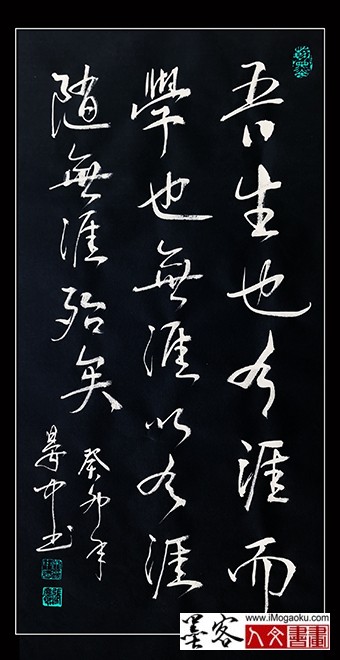 吾生也有涯而
學也無涯以有涯
隨無涯殆矣
癸卯年
晏中书
www.iMogaoku.com
墨客
人文書畫